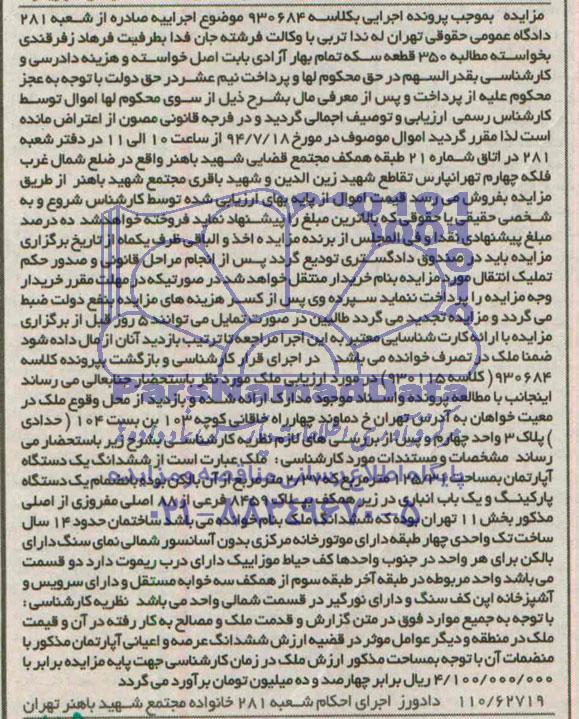 مزایده بموجب پرونده اجرایی بکلاسه ۹۳۰۶۸۴ موضوع اجراییه صادره از شعبه ۲۸۱
دادگاه عمومی حقوقی تهران له ندا تربی با وکالت فرشته جان فدا بطرفیت فرهاد زفرقندی
بخواسته مطالبه ۳۵۰ قطعه سکه تمام بهار آزادی بابت اصل خواسته و هزینه دادرسی و
کارشناسی بقدر السهم در حق محکوم لها و پرداخت نیم عشر در حق دولت با توجه به عجز
محکوم علیه از پرداخت و پس از معرفی مال بشرح ذیل از سوی محکوم لها اموال توسط
کارشناس رسمی ارزیابی و توصیف اجمالی گردید و در فرجه قانونی مصون از اعتراض مانده
است لذا مقرر گردید اموال موصوف در مورخ ۹۴/۷/۱۸ از ساعت ۱۰ الی ۱۱ در دفتر شعبه
۲۸۱ در اتاق شماره ۲۱ طبقه همکف مجتمع قضایی شهید باهنر واقع در ضلع شمال غرب
فلکه چهارم تهرانپارس تقاطع شهید زین الدین و شهید باقری مجتمع شهید باهنر از طریق
مزایده بفروش می رسد قیمت اموال از پایه بهای ارزیابی شده توسط کارشناس شروع و به
شخصی حقیقی یا حقوقی که بالاترین مبلغ را پیشنهاد نماید فروخته خواهد شد ده درصد
مبلغ پیشنهادی نقدا و فی المجلس از برنده مزایده اخذ و الباقی ظرف یکماه از تاریخ برگزاری
مزایده باید در صندوق دادگستری تودیع گردد پس از انجام مراحل قانونی و صدور حکم
تملیک انتقال مورد مزایده بنام خریدار منتقل خواهد شد در صورتیکه در مهلت مقرر خریدار
وجه مزایده را پرداخت ننماید سپرده وی پس از کسر هزینه های مزایده بنفع دولت ضبط
می گردد و مزایده تجدید می گردد طالبین در صورت تمایل می توانند ۵ روز قبل از برگزاری
مزایده با ارائه کارت شناسایی معتبر به این اجرا مراجعه تا ترتیب بازدید آنان از مال داده شود
ضمنا ملک در تصرف خوانده می باشد در اجرای قرار کارشناسی و بازگشت بپرونده کلاسه
۹۳۰۶۸۴ ( کلاسه ۹۳۰۱۱۵) در مورد ارزیابی ملک مورد نظر باستحضار جنابعالی می رساند
اینجانب با مطالعه پرونده و اسناد موجود مدارک ارائه شده و بازدید از محل وقوع ملک در
معیت خواهان به آدرس تهران خ دماوند چهارراه خاقانی کوچه ۱۰۲ بن بست ۱۰۴ ( حدادی
) پلاک ۳ واحد چهارم و پس از بررسی های لازم نظریه کارشناسی بشرح زیر باستحضار می
رساند مشخصات و مستندات مورد کارشناسی : ملک عبارت است از ششدانگ یک دستگاه
آپارتمان بمساحت متر مربع که ۲/۳۷ مترمربع از آن بالکن بوده بانضمام یک دستگاه
پارکینگ و یک باب انباری در زیر همکف بپلاک ۸۴۵۹ فرعی از ۸۸ اصلی مفروزی از اصلی
مذکور بخش ۱۱ تهران بوده که ششدانگ ملک بنام خوانده می باشد ساختمان حدود ۱۴ سال
ساخت تک واحدی چهار طبقه دارای موتورخانه مرکزی بدون آسانسور شمالی نمای سنگ دارای
بالکن برای هر واحد در جنوب واحدها کف حیاط موزاییک دارای درب ریموت دارد دو قسمت
می باشد واحد مربوطه در طبقه آخر طبقه سوم از همکف سه خوابه مستقل و دارای سرویس و
آشپزخانه اپن کف سنگ و دارای نورگیر در قسمت شمالی واحد می باشد نظریه کارشناسی :
با توجه به جمیع موارد فوق در متن گزارش و قدمت ملک و مصالح به کار رفته در آن و قیمت
ملک در منطقه و دیگر عوامل موثر در قضیه ارزش ششدانگ عرصه و اعیانی آپارتمان مذکور با
منضمات آن با توجه بمساحت مذکور ارزش ملک در زمان کارشناسی جهت پایه مزایده برابر با
۴/۱۰۰/۰۰۰/۰۰۰ ریال برابر چهارصد و ده میلیون تومان برآورد می گردد
۱۱۰/۶۲۷۱۹ دادورز اجرای احکام شعبه ۲۸۱ خانواده مجتمع شهید باهنر تهران
ParsNamadData
پایگاه اطلاع رسانی مناقصه و مزایده
۰۲۱-۸۸۳۴۹۶۷۰-۵